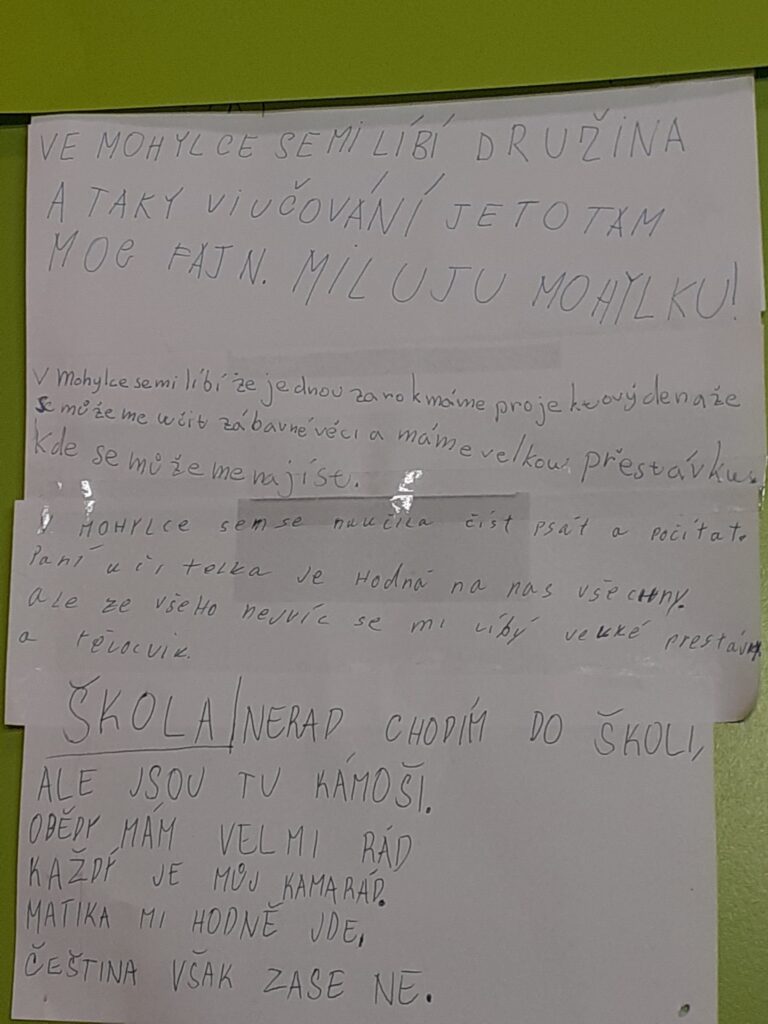 VE MOHYLCE SE MI LÍBÍ DRUŽINA
A TAKY VIUČOVÁNÍ JE TO TAM
MOC FAJN. MILUJU MOHYLKU!
V Mohylce se mi líbí že jednou za rok máme projektový den a že
se můžeme učit zábavné věci a máme velkou přestávku
kde se můžeme najíst.
V MOHYLCE sem se naučila číst psát a počítat.
Paní učitelka je hodná na nas všechny.
ale ze všeho nejvíc se mi líbý velké prestávky
a tělocvik.
ŠKOLA/NERAD CHODÍM DO ŠKOLI,
ALE JSOU TU KÁMOŠI.
OBĚDY MÁM VELMI RÁD
KAŽDÝ JE MŮJ KAMARÁD.
MATIKA MI HODNĚ JDE,
ČEŠTINA VŠAK ZASE NE.